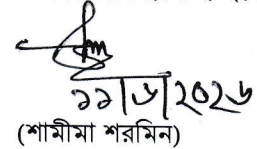 ১১/৬/২০২৬
(শামীমা শরমিন)